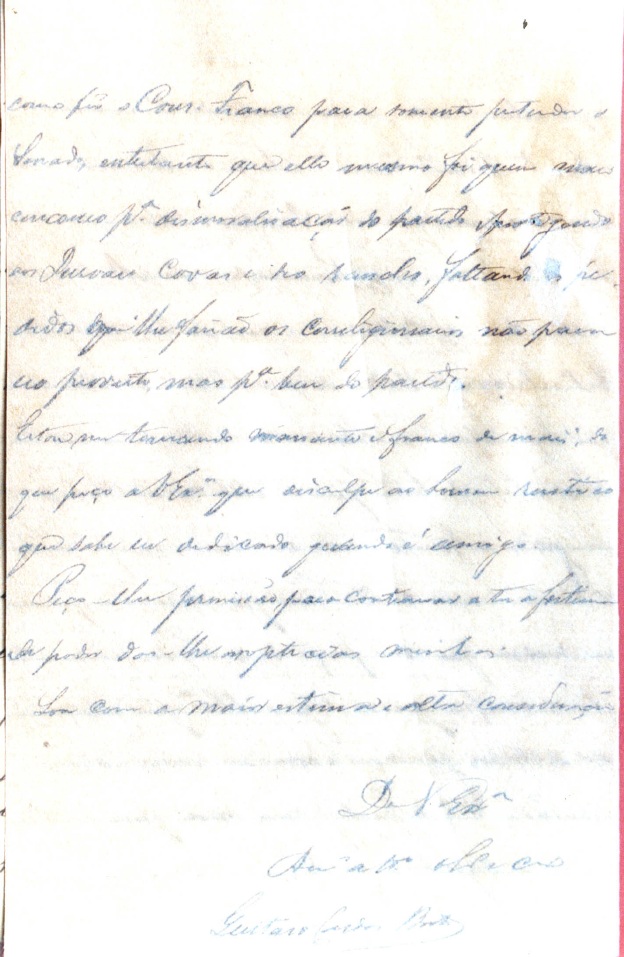 como fês o Cons. Franco para somente pretender o
Senado, entretanto que elle mesmo foi quem mais
concorreu pª desmoralisação do partido protegendo
aos Covas e dos faltando os pe-
didos que lhe fazião os correligionarios não para
seo proveito, mas pª bem do partido.
Estou me tornando massante e franco de mais; do
que peço a VExª que disculpe ao homem rustico
que sabe ser dedicado quando é amigo.
Peço-lhe permissão para continuar a ter a fortuna
de poder dar-lhe noticias minhas.
Sou com a maior estima e alta consideração
De V. Exª
Amº attº e Crº
Gustavo